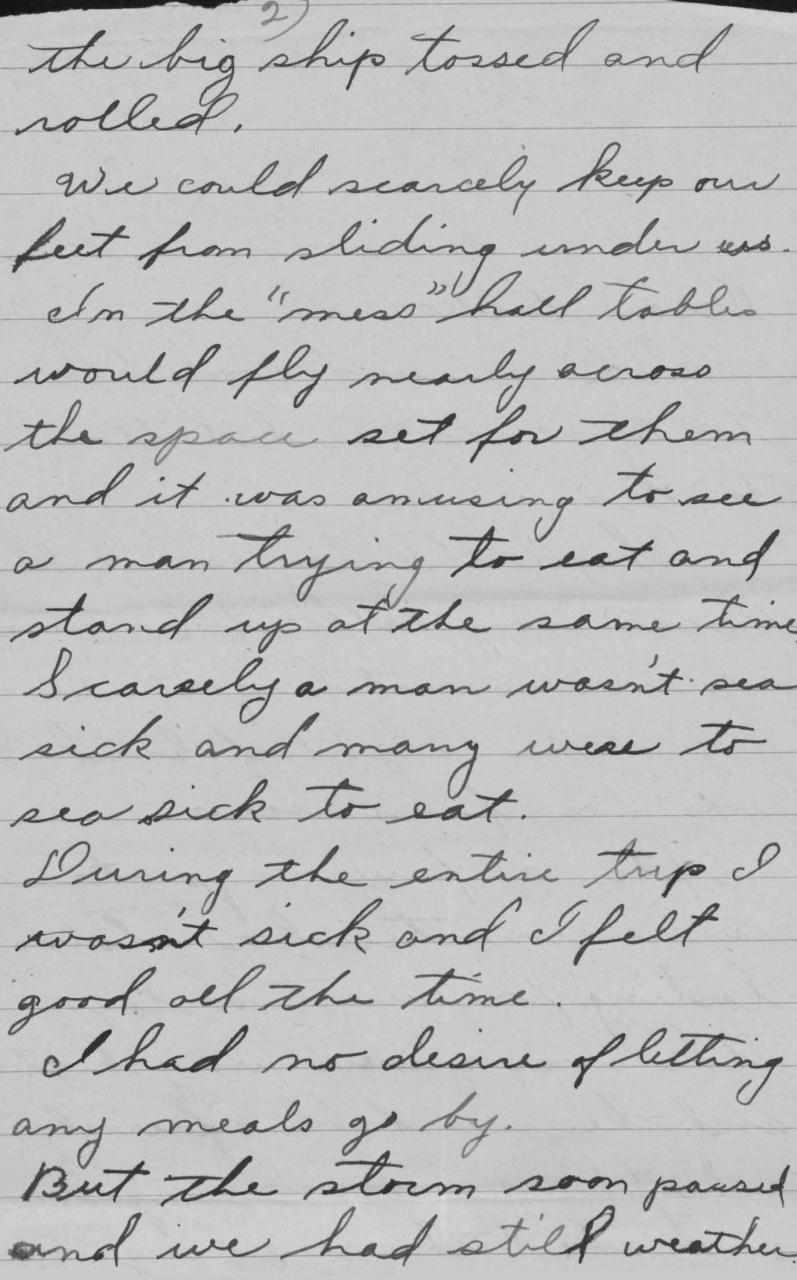 2)
the big ship tossed and
rolled.
We could scarcely keep our
feet from sliding under us.
In the "mess" hall tables
would fly nearly across
the space set for them
and it was amusing to see
a man trying to eat and
stand up at the same time
Scarsely a man wasn't sea
sick and many were to
sea sick to eat.
During the entire trip I
wasn't sick and I felt
good all the time.
I had no desire of letting
any meals go by.
But the storm soon paused
and we had still weather.